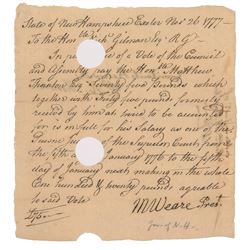 State of New Hampshire Exeter Nov 26 1777
To the Honble Gilman Esq R G
In pursuance of a Vote of the Council
and Assembly pay the Honble Matthew
Thornton Esq Seventy five Pounds which
together with Sixty five pounds formerly
received by him
is in full for his Salary as one of the
Justices of the Superior Court from
the fifth January 1776 to the fifth
day of January next making in the whole
One hundred & twenty pounds agreeable
to said Vote
M Weare Prest
of N.H.